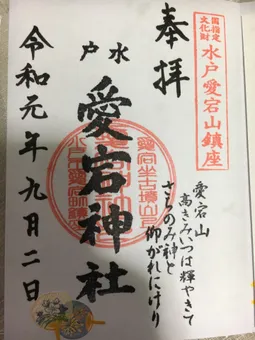 国指定
文化財
水戸愛宕山鎮座
奉拝
愛宕山
高きみいつは輝やきて
さちのみ神と
仰がれにけり
水戸
愛宕神社
令和元年九月二日